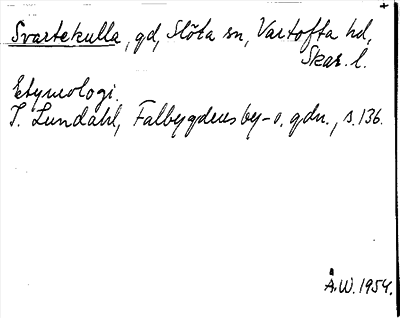 Svartekulla, gd, Slöta sn, Vartofta hd,
Skar. l.
Etymologi
I. Lundahl, Falbygdens by- o. gdn., s. 136.
Å.W. 1954.